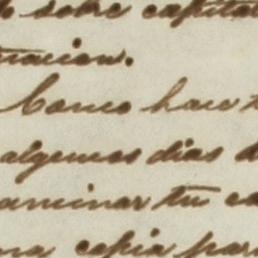 sobre capital
macion.
Como hace t
algunos dias d
aminar tu ca
na copia para